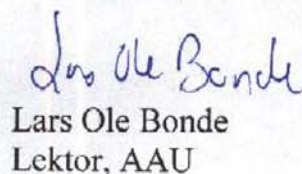 Lars Ole Bonde
Lars Ole Bonde
Lektor, AAU